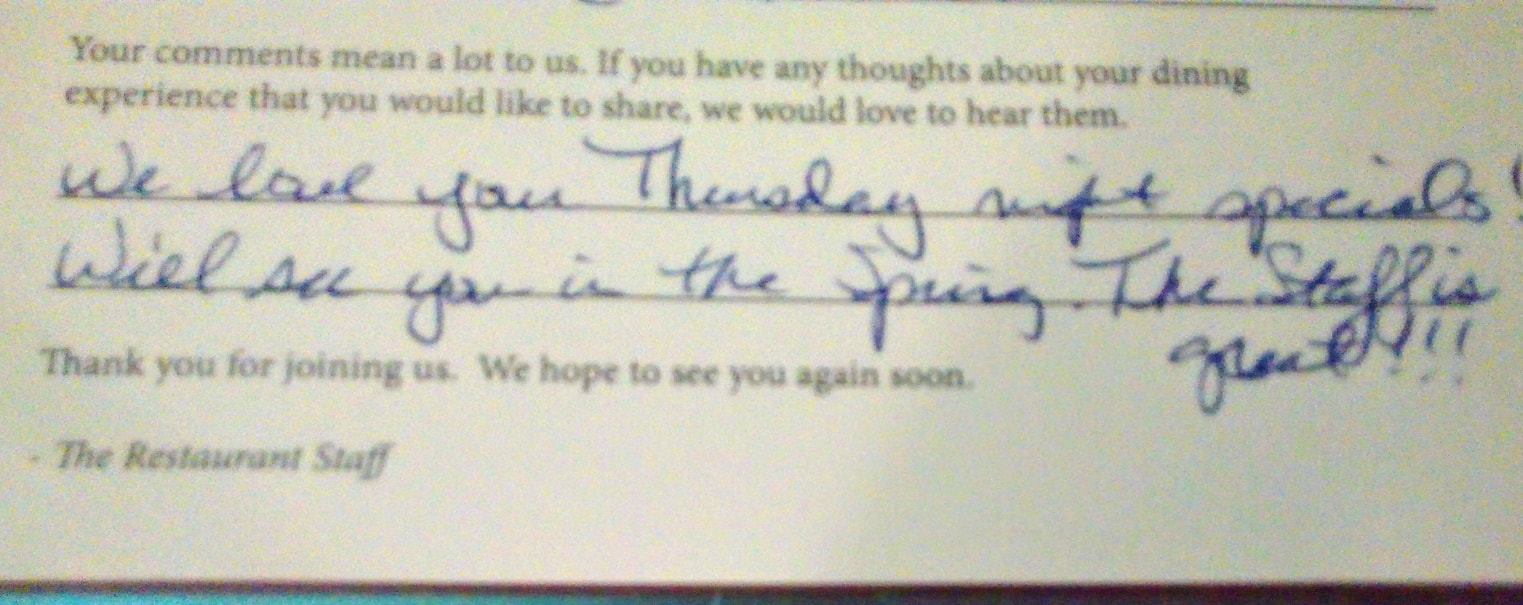 Your comments mean a lot to us. If you have any thoughts about your dining
experience that you would like to share, we would love to hear them.
We love your Thursday night specials!
Will see you in the Spring. The Staff is
great!!!
Thank you for joining us. We hope to see you again soon.
- The Restaurant Staff